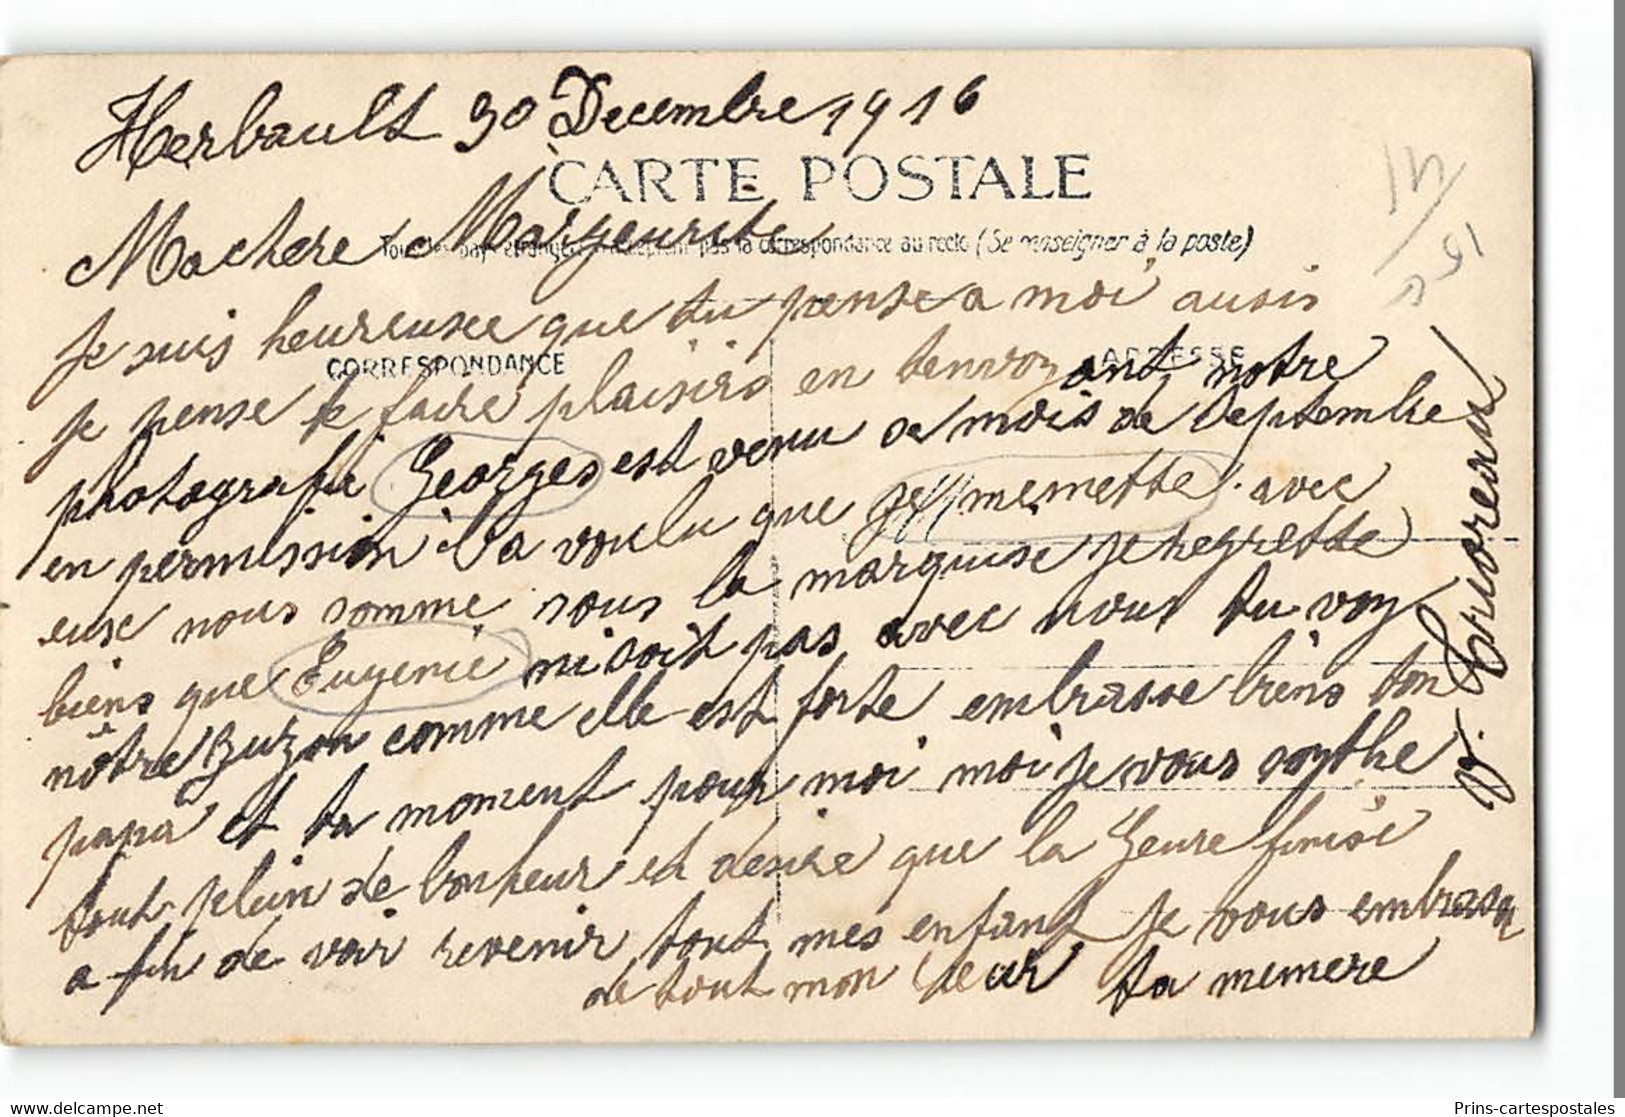 Herbault 30 Decembre 1916
CARTE POSTALE
Machere Margeurite
Tous les pays étrangers n'acceptent pas la correspondance au recto (Se renseigner à la poste)
je suis heureusee que tu pense a moi ausis
CORRESPONDANCE
ADRESSE
je pense te faire plaisirs en tenvoyant notre
photografie Georges est venu se mois de Septembre
en permission il a voulu que je memette avec
eux nous somme sous la marquise je regrette
biens que Eugenie ni soit pas avec nous tu voy
nôtre Zuzon comme elle est forte embrasse biens ton
papa et ta moment pour moi moi je vous soythe
tout plein de bonheur et desire que la Geure finise
a fin de voir revenir tout mes enfant je vous embrase
de tout mon Ceur ta memere
15
Prins-cartespostales.com
Prins-cartespostales